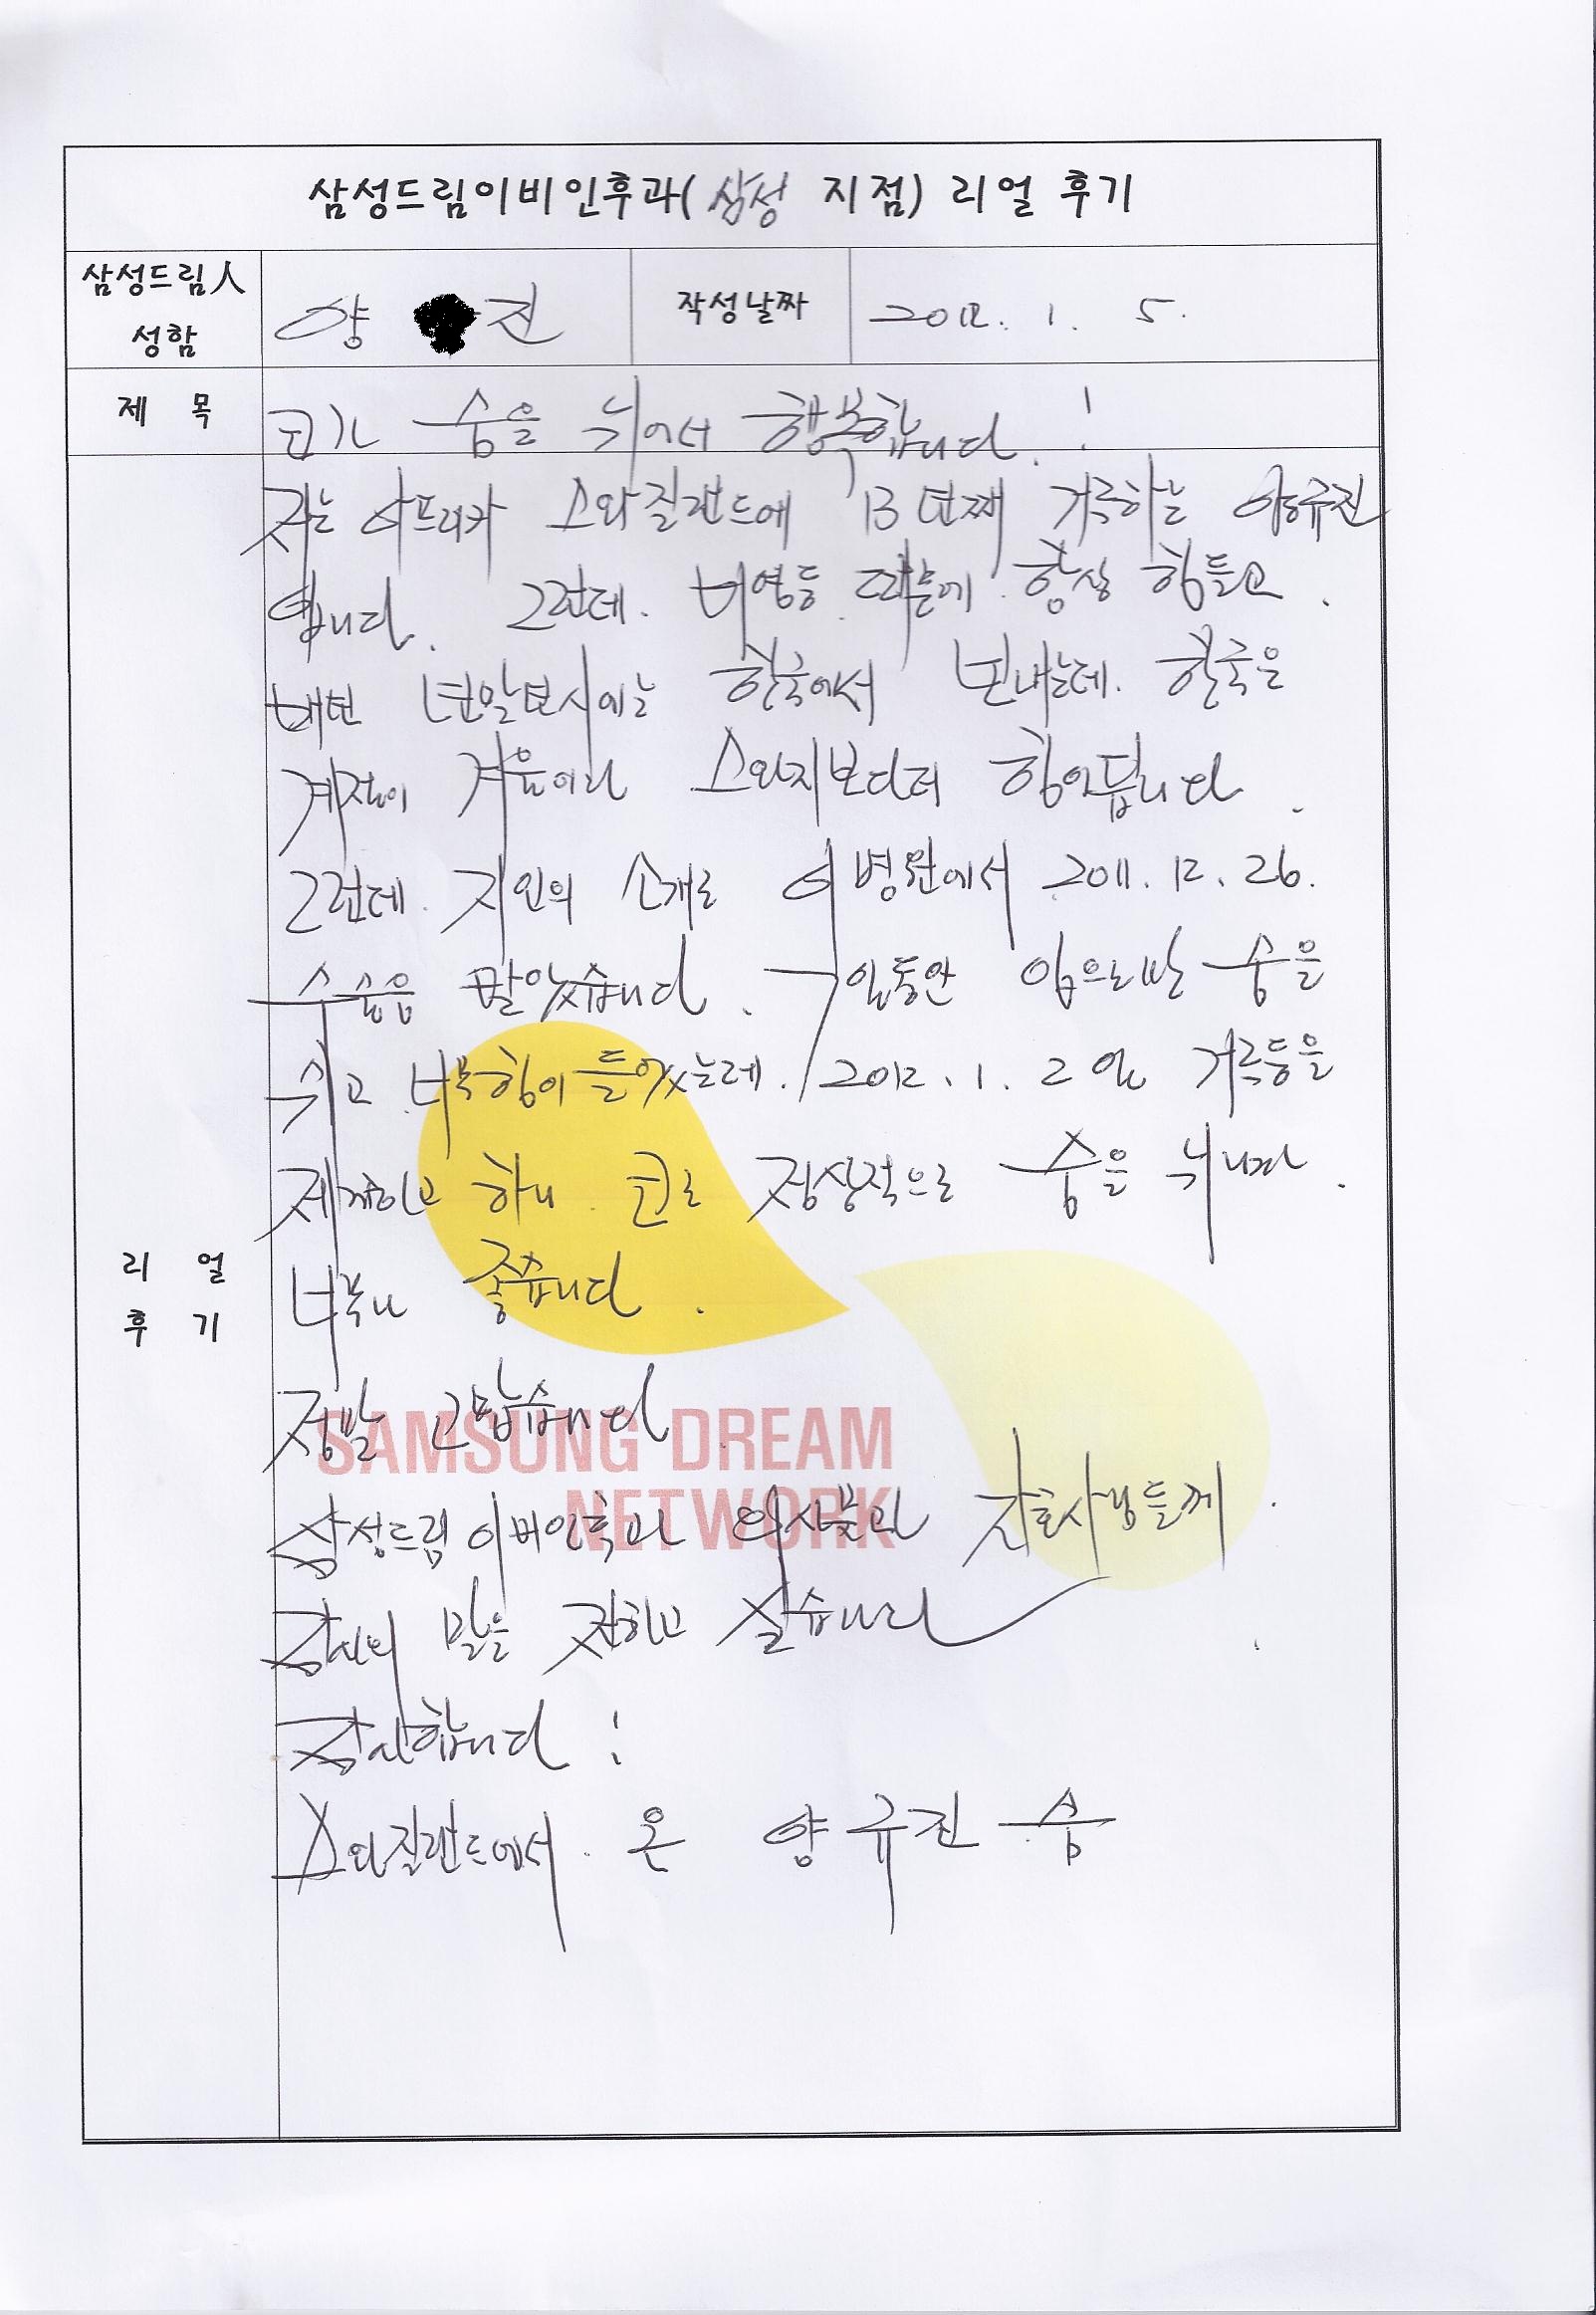 삼성드림이비인후과(삼성 지점) 리얼 후기
삼성드림人 성함
양 진
작성날짜
2012. 1. 5.
제 목
코가 숨을 쉬어서 행복합니다. !
리 얼 후 기
저는 아프리카 스와질랜드에 13년째 거주하는 양규진
입니다. 그런데. 비염등 때문에 항상 힘들고.
매번 년말년시에는 한국에서 보내는데. 한국은
계절이 겨울이라 스와지보다더 힘이듭니다.
그런데. 지인의 소개로 이 병원에서 2011. 12. 26.
수술을 받았습니다. 7일동안 입으로만 숨을
쉬고 너무 힘이 들었는데. 2012. 1. 2일 거즈등을
제거하고 하니 코로 정상적으로 숨을 쉬니까.
너무나 좋습니다.
정말 고맙습니다
삼성드림이비인후과 의사분과 간호사님들께.
감사의 말을 전하고 싶습니다.
감사합니다!
스와질랜드에서. 온 양규진 씀
SAMSUNG DREAM
NETWORK